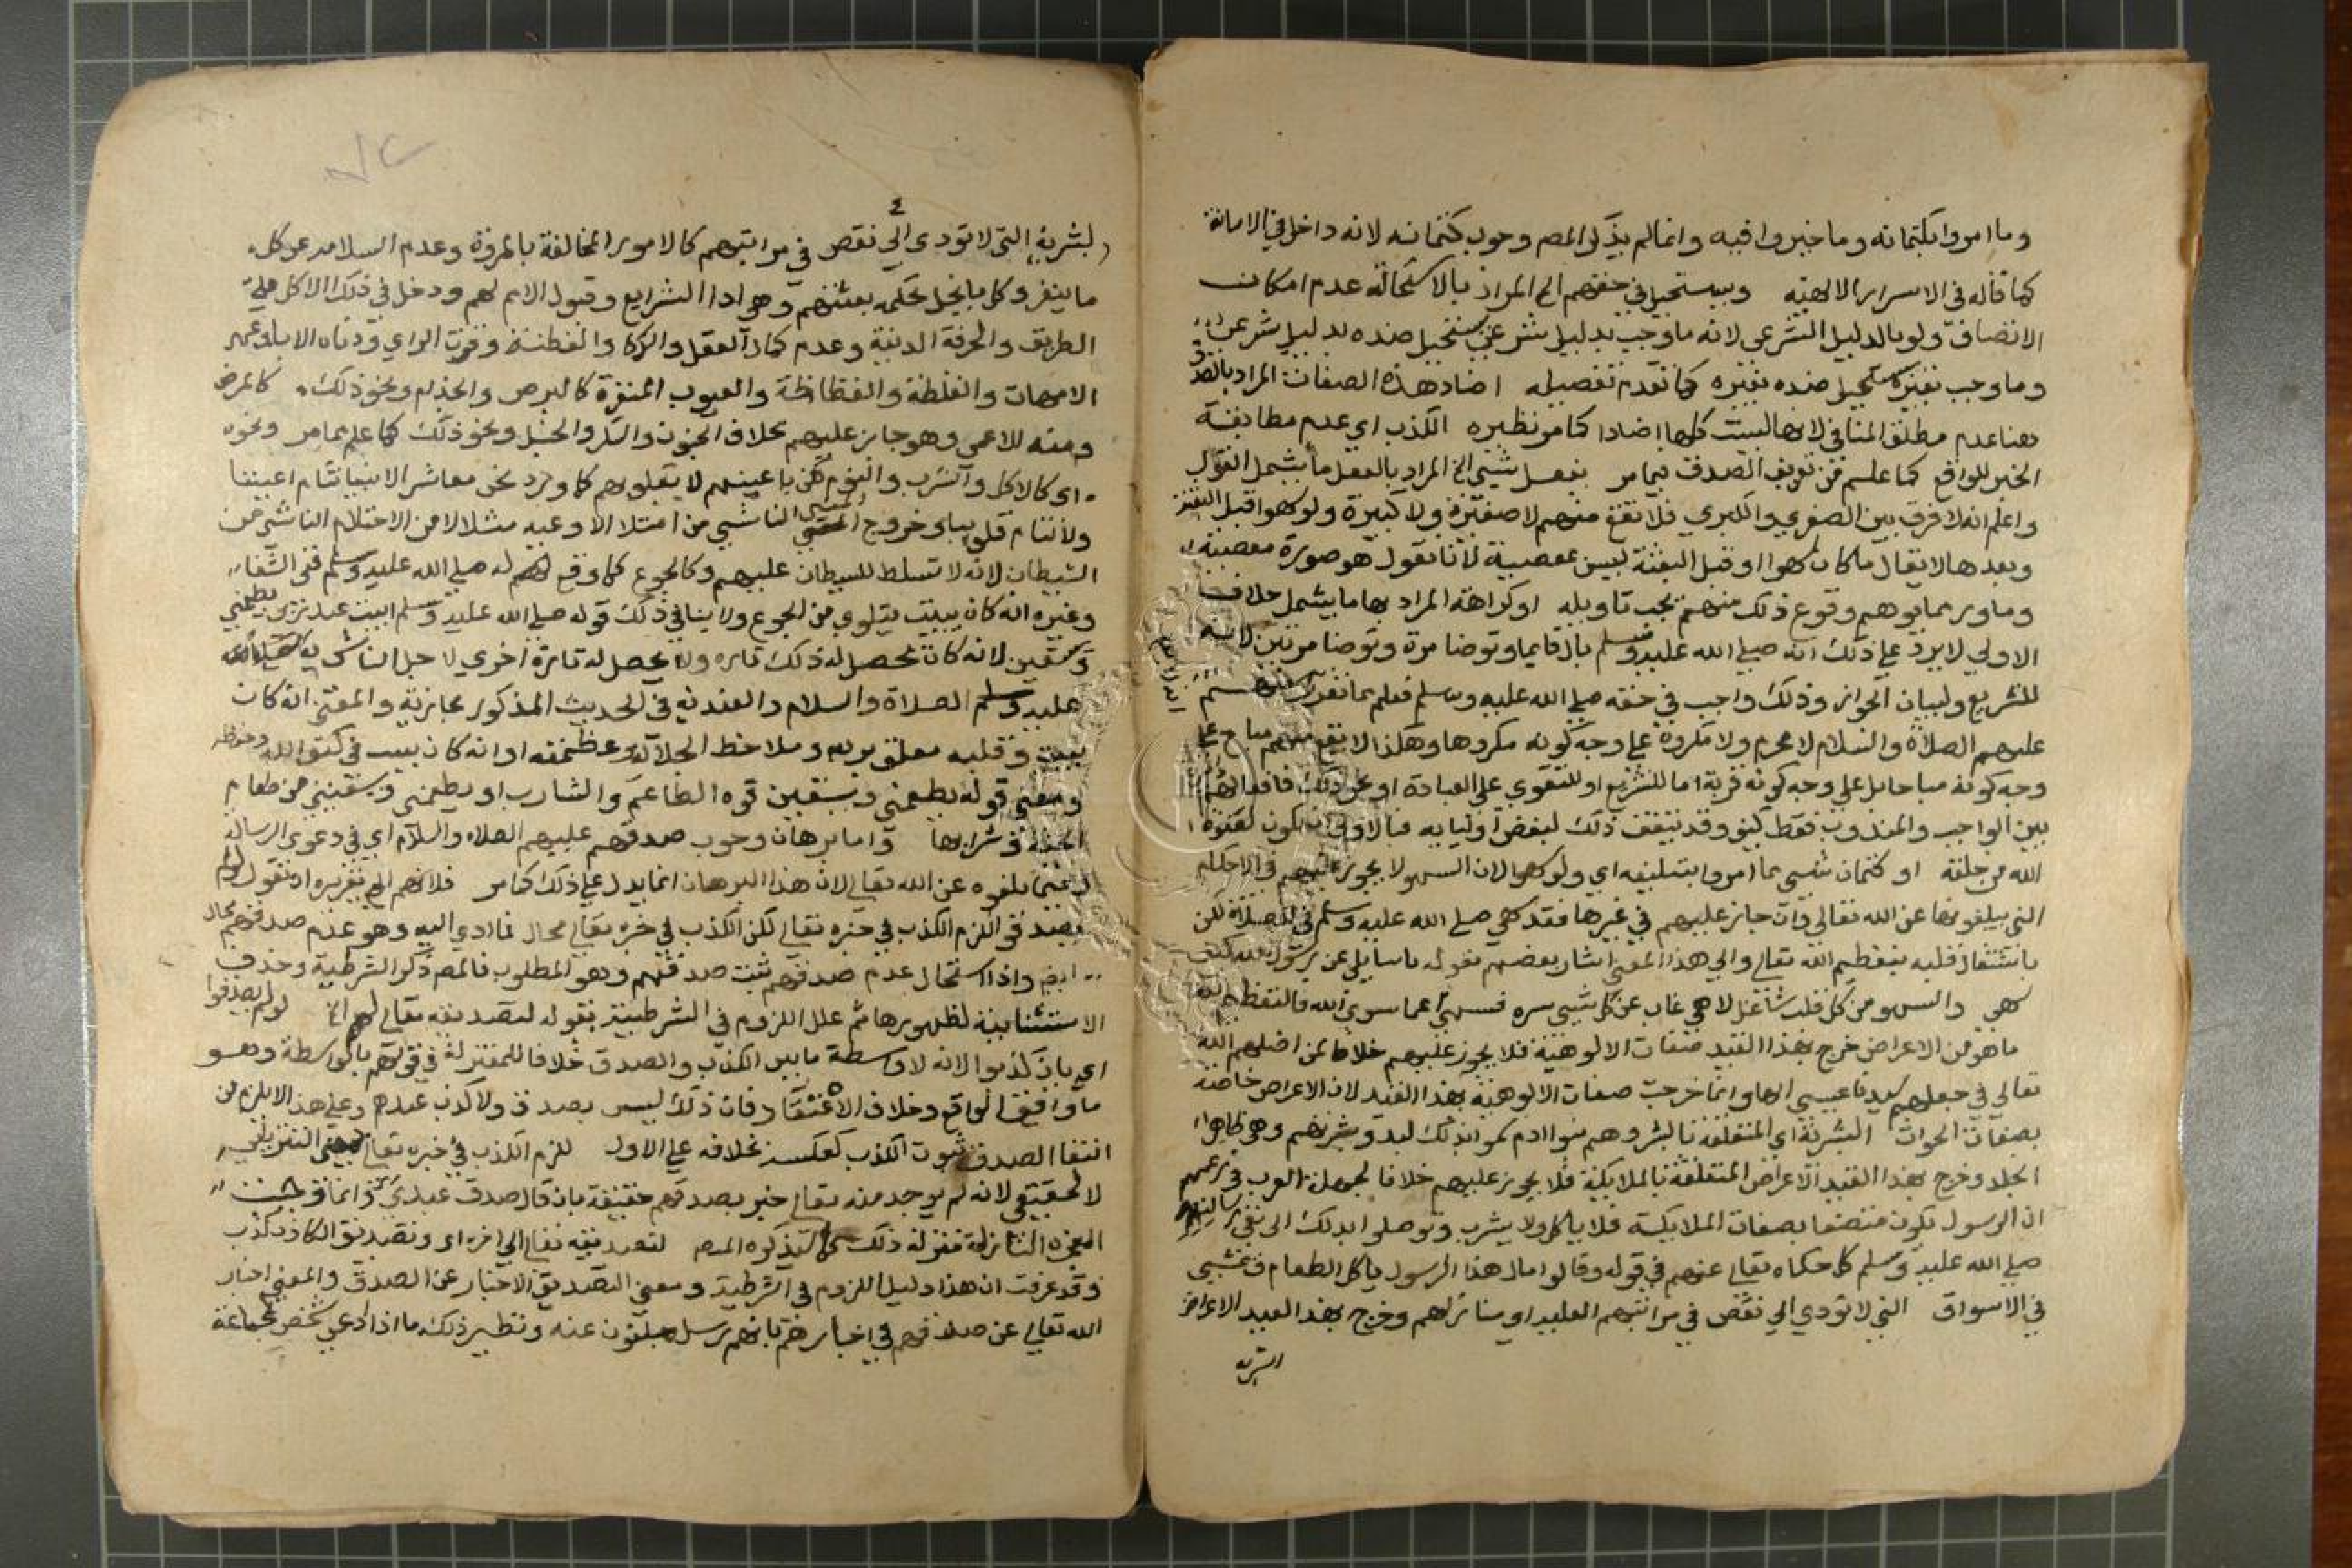 وما امروا بكتمانه وما خيروا فيه وانما لم يذكر المصـ وجوب كتمانه لانه داخل في الامانة
كما قاله في الاسرار الالهية ويستحيل في حقهم الخ المراد بالاستحالة عدم امكان
الاتصاف ولو بالدليل الشرعى لانه ما وجب بدليل شرعى يستحيل ضده بدليل شرعى
وما وجب بغيره يستحيل ضده بغيره كما تقدم تفصيله اضداد هذه الصفات المراد بالضد
هنا عدم مطلق المنافي لانها ليست كلها اضدادا كما مر نظيره الكذب اي عدم مطابقة
الخبر للواقع كما علم من تعريف الصدق فيما مر بفعل شيي الخ المراد بالفعل ما يشمل القول
واعلم انه لا فرق بين الصغري والكبري فلا تقع منهم لا صغيرة ولا كبيرة ولو سهوا قبل البعثة
وبعدها لا يقال ما كان سهوا او قبل البعثة ليس بمعصية لانا نقول هو صورة معصية
وما ورد مما يوهم وقوع ذلك منهم يجب تاويله او كراهة المراد بها ما يشمل خلاف
الاولي لا يرد علي ذلك انه صلي الله عليه وسلم بال قايما وتوضا مرة وتوضا مرتين لانه
للتشريع ولبيان الجواز وذلك واجب في حقه صلي الله عليه وسلم فعلم مما تقرر
عليهم الصلاة والسلام لا محرم ولا مكروه علي وجه كونه مكروها وهكذا لا يقع منهم مباح علي
وجه كونه مباحا بل علي وجه كونه قربة اما للتشريع او للتقوي علي العبادة او نحو ذلك فافعالهم
بين الواجب والمندوب فقط كيف وقد يتفق ذلك لبعض اوليايه فبالاولي ان يكون لصفوة
الله من خلقه او كتمان شيي مما امروا بتبليغه اي ولو سهوا لان السهو لا يجوز عليهم في الاحكام
التي يبلغونها عن الله تعالي وان جاز عليهم في غيرها فقد سهي صلي الله عليه وسلم في الصلاة لكن
باشتغال قلبه بتعظيم الله تعالي والي هذا المعني اشار بعضهم بقوله يا سايلي عن رسول الله كيف
سهي والسهو من كل قلب غافل لاهي غاب عن كل شيي سره فسهي عما سوي الله فالتعظيم لله
ما هو من الاعراض خرج بهذا القيد صفات الالوهية فلا يجوز عليهم خلافا لمن اضلهم الله
تعالي في جعلهم سيدنا عيسي الها وانما خرجت صفات الالوهية بهذا القيد لان الاعراض خاصة
بصفات الحوادث البشرية اي المتعلقة بالبشر وهم بنوا ادم سموا بذلك لبدو بشرتهم وهو ظاهر
الجلد وخرج بهذا القيد الاعراض المتعلقة بالملايكة فلا يجوز عليهم خلافا لجهلة العرب في زعمهم
ان الرسول يكون متصفا بصفات الملايكة فلا ياكل ولا يشرب وتوصلوا بذلك الى نفي رسالته
صلي الله عليه وسلم كما حكاه تعالي عنهم في قوله وقالوا مال هذا الرسول ياكل الطعام ويمشي
في الاسواق التي لا تودي الي نقص في مراتبهم العلية اي منازلهم وخرج بهذا القيد الاعراض
البشرية
٤
البشرية التي لا تودى الي نقص في مراتبهم كالامور المخالفة بالمروة وعدم السلامة عن كل
ما ينفر وكل ما يخل بحكمة بعثتهم وهو ادا الشرايع وقبول الامم لهم ودخل في ذلك الاكل علي
الطريق والحرفة الدنية وعدم كمال العقل والذكا والفطنة وقوة الراي ودناه الابا وعهر
الامهات والغلظة والفظاظة والعيوب المنفرة كالبرص والجذام ونحو ذلك كالمرض
ومنه للاعمي وهو جايز عليهم بخلاف الجنون والسكر والخبل ونحو ذلك كما علم مما مر ونحوه
اى كالاكل والشرب والنوم لكن باعينهم لا بقلوبهم كما ورد نحن معاشر الانبيا تنام اعيننا
ولا تنام قلوبنا وخروج المني الناشي من امتلا الاوعية مثلا لا من الاحتلام الناشي عن
الشيطان لانه لا تسلط للشيطان عليهم وكالجوع كما وقع له صلي الله عليه وسلم ففي الشفا
وغيره انه كان يبيت يتلوي من الجوع ولا ينافي ذلك قوله صلي الله عليه وسلم ابيت عند ربي يطعمني
ويسقين لانه كان يحصل له ذلك تارة ولا يحصل له تارة اخري لاجل التاسي به
عليه الصلاة والسلام والعندية في الحديث المذكور مجازية والمعني انه كان
يبيت وقلبه معلق بربه وملاحظ لجلاله وعظمته او انه كان يبيت في كنف الله وحفظه
ومعني قوله يطعمني ويسقين قوة الطاعم والشارب او يطعمني ويسقيني من طعام
الجنة وشرابها واما برهان وجوب صدقهم عليهم الصلاه والسلام اي في دعوى الرسالة
وفيما بلغوه عن الله تعالي لان هذا البرهان انما يدل علي ذلك كما مر فلانهم الخ تقريره ان تقول لو لم
يصدقوا للزم الكذب في خبره تعالي لكن الكذب في خبره تعالي محال فما ادي اليه وهو عدم صدقهم محال
ايضا واذا استحال عدم صدقهم ثبت صدقهم وهو المطلوب فالمصـ ذكر الشرطية وحذف
الاستثنايية لظهورها ثم علل اللزوم في الشرطية بقوله لتصديقه تعالي لهم الخ لو لم يصدقوا
اي بان كذبوا لانه لا واسطة ما بين الكذب والصدق خلافا للمعتزلة في قولهم بالواسطة وهو
ما وافق الواقع وخلاف الاعتقاد فان ذلك ليس بصدق ولا كذب عندهم وعلي هذا لا يلزم من
انتفا الصدق ثبوت الكذب كعكسه بخلافه علي الاول للزم الكذب في خبره تعالي يعني التنزيلي
لا الحقيقي لانه لم يوجد منه تعالي خبر بصدقهم حقيقة بان قال صدق عبدي وانما وجدت
المعجزه النازلة منزلة ذلك كما يذكره المصـ لتصديقه تعالي الي اخره اى وتصديق الكاذب كذب
وقد عرفت ان هذا دليل للزوم في الشرطية ومعني التصديق الاخبار عن الصدق والمعني اخبار
الله تعالي عن صدقهم في اخبارهم بانهم رسل مبلغون عنه ونظير ذلك ما اذا ادعي شخص بجماعة